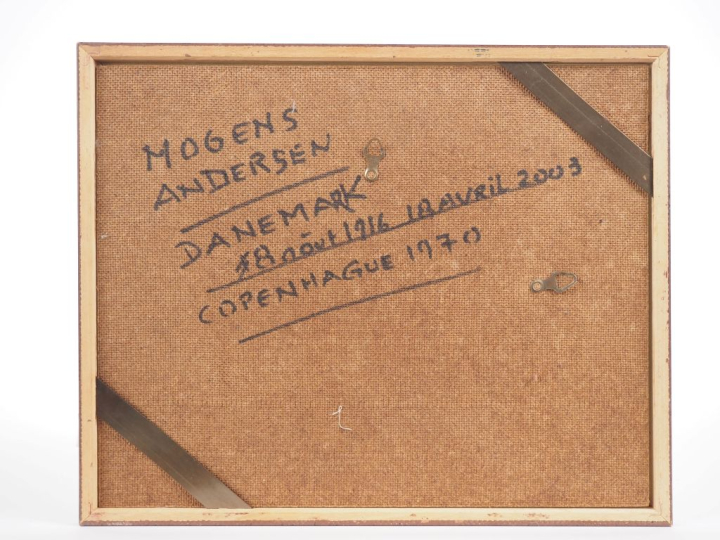 MOGENS
ANDERSEN
DANEMARK
8 août 1916 18 AVRIL 2003
COPENHAGUE 1970